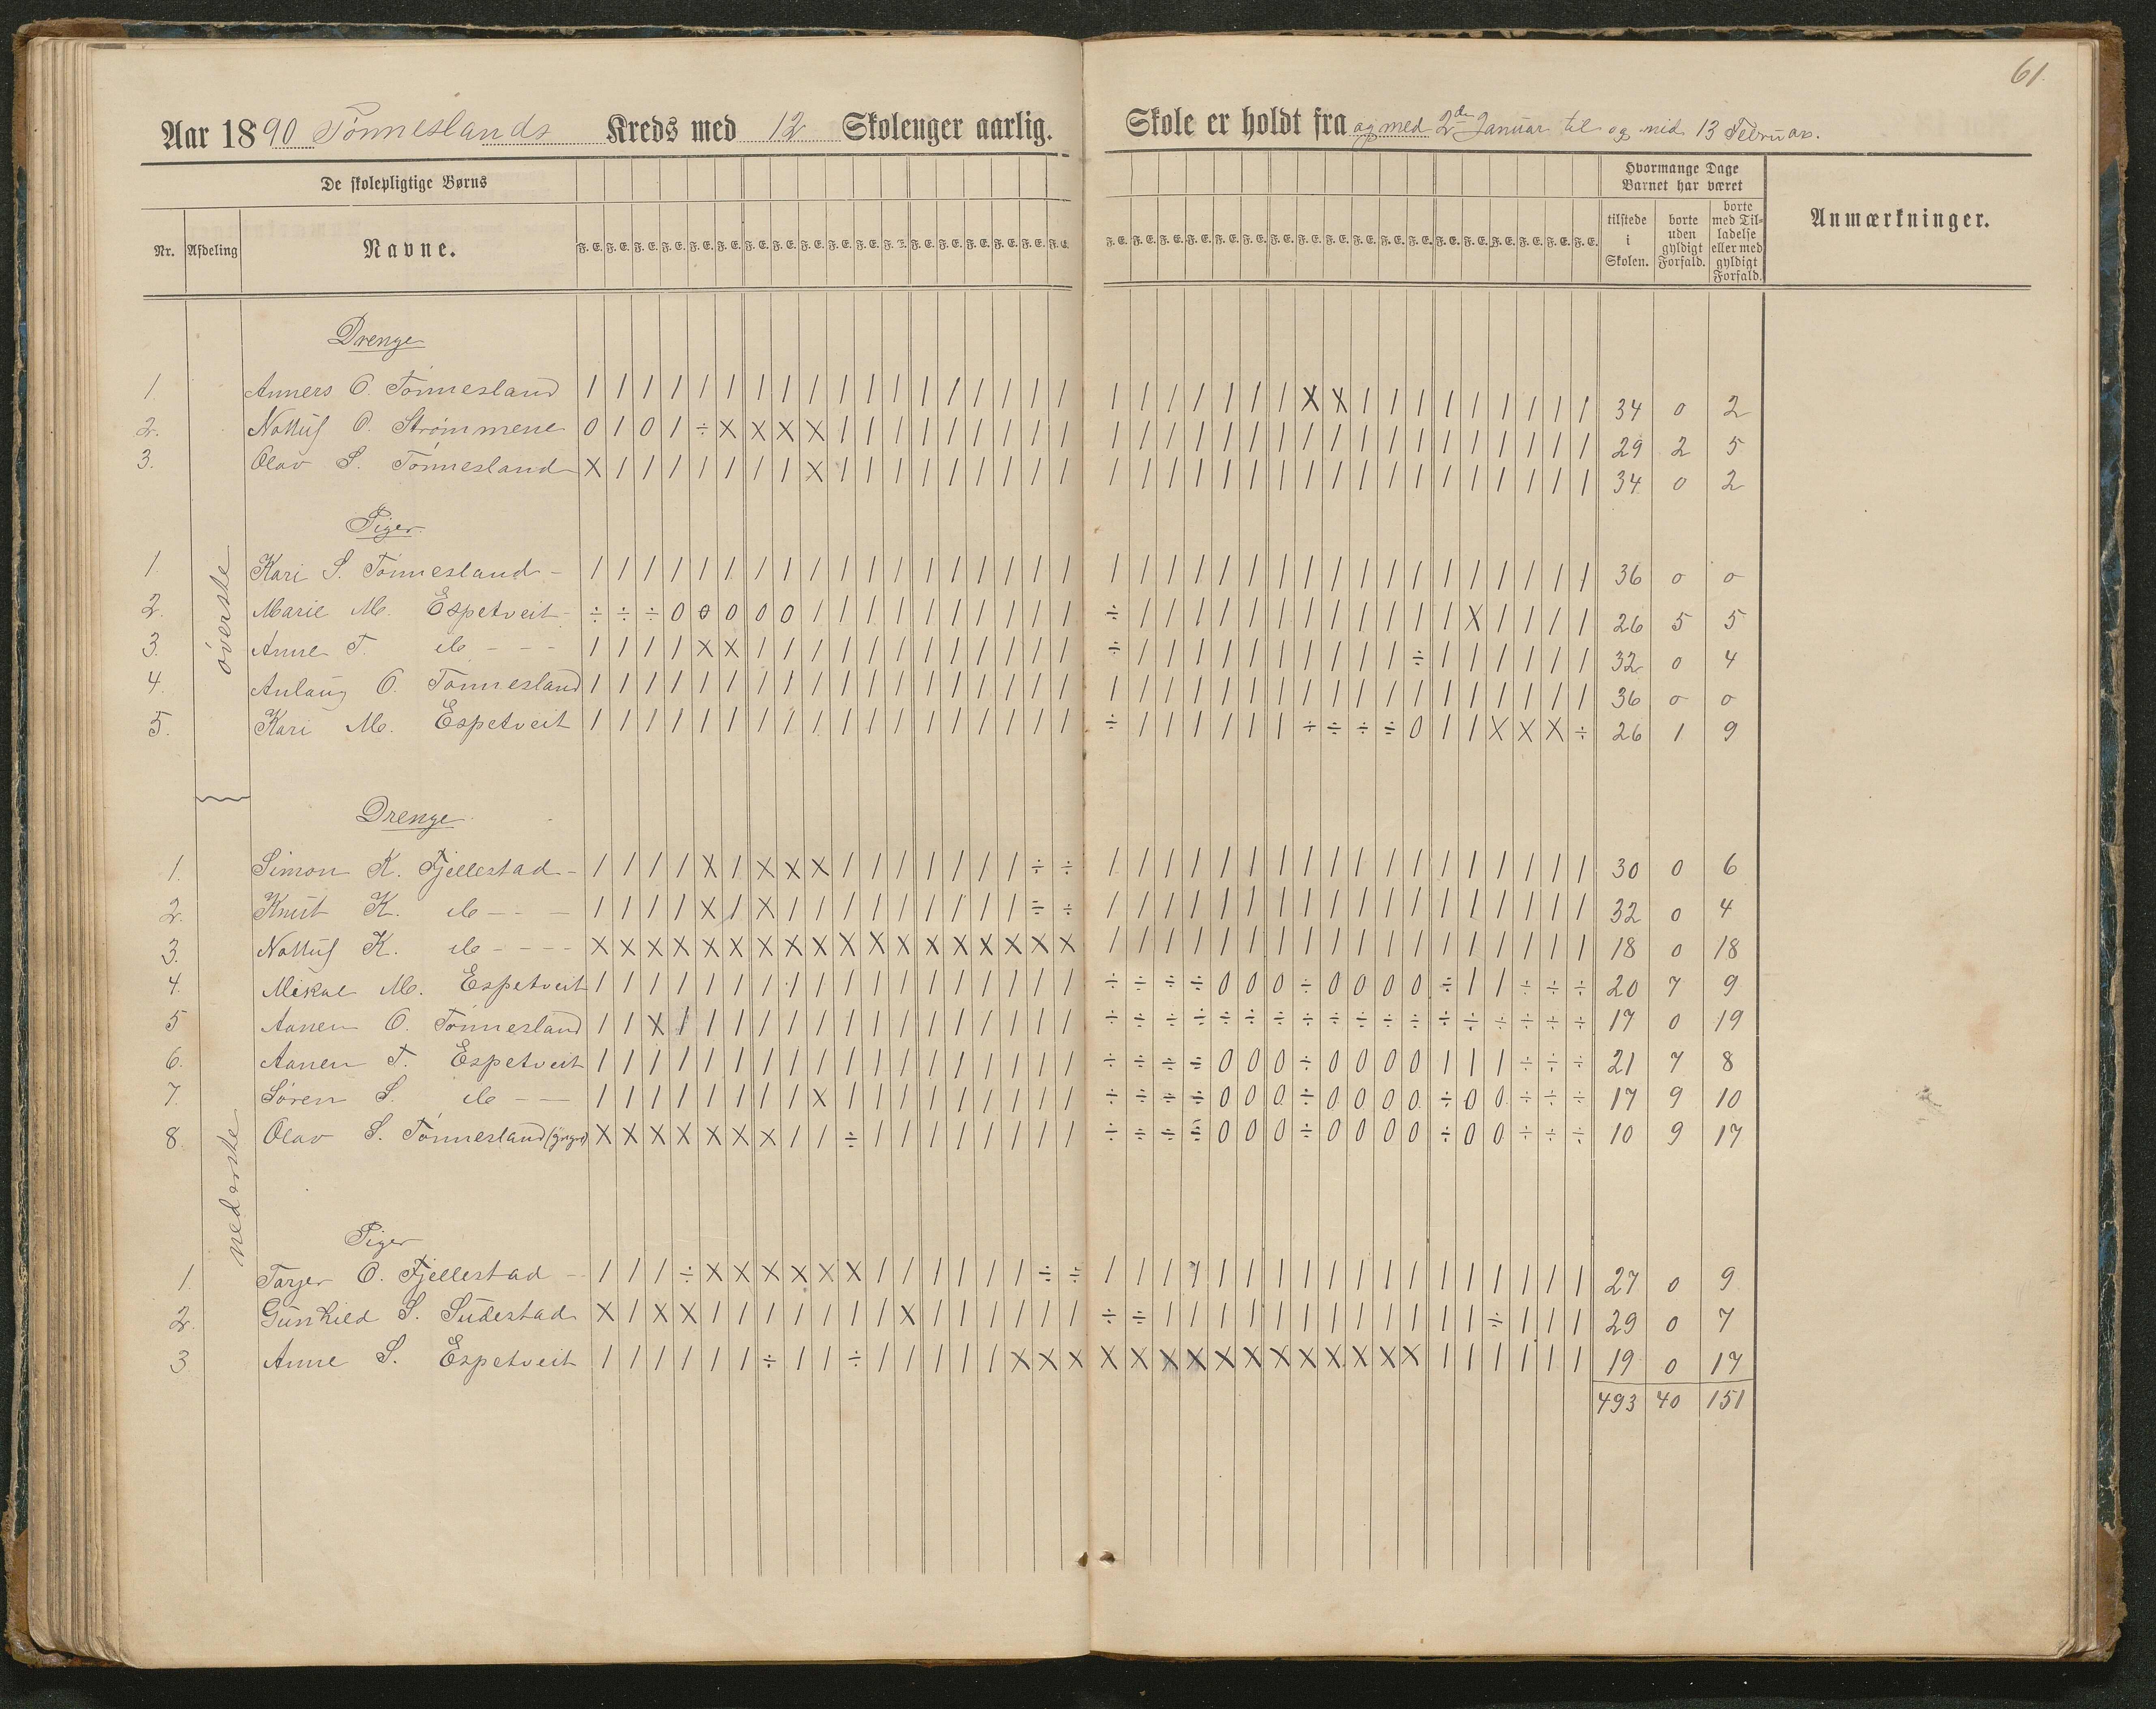 61.
Aar 1890 Tønneslands Kreds med 12 Skoleuger aarlig. Skole er holdt fra og med 2den Januar til og med 13 Februar.
De skolepligtige Børns
Hvormange Dage
Barnet har været
Nr. Afdeling Navne.
F. E. F. E. F. E. F. E. F. E. F. E. F. E. F. E. F. E. F. E. F. E. F. E. F. E. F. E. F. E. F. E. F. E. F. E.
F. E. F. E. F. E. F. E. F. E. F. E. F. E. F. E. F. E. F. E. F. E. F. E. F. E. F. E. F. E. F. E. F. E. F. E.
tilstede i Skolen.
borte uden gyldigt Forfald.
borte med Tilladelse eller med gyldigt Forfald.
Anmærkninger.
øverste
Drenge
1. Anners O. Tønnesland / / / / / / / / / / / / / / / / / / / / / / / / / X X / / / / / / / / / 34 0 2
2. Nottuf O. Strømmene 0 / 0 / ÷ X X X X / / / / / / / / / / / / / / / / / / / / / / / / / / / 29 2 5
3. Olav S. Tønnesland X / / / / / / / X / / / / / / / / / / / / / / / / / / / / / / / / / / / 34 0 2
Piger.
1. Kari S. Tønnesland - / / / / / / / / / / / / / / / / / / / / / / / / / / / / / / / / / / / / 36 0 0
2. Marie M. Espetveit - ÷ ÷ ÷ 0 0 0 0 0 / / / / / / / / / / ÷ / / / / / / / / / / / / X / / / / 26 5 5
3. Anne T. do - - - / / / / X X / / / / / / / / / / / / ÷ / / / / / / / / / / ÷ / / / / / / 32 0 4
4. Anlaug O. Tønnesland / / / / / / / / / / / / / / / / / / / / / / / / / / / / / / / / / / / / 36 0 0
5. Kari M. Espetveit / / / / / / / / / / / / / / / / / / ÷ / / / / / / ÷ ÷ ÷ ÷ 0 / / X X X ÷ 26 1 9
nederste
Drenge
1. Simon K. Fjellestad - / / / / X / X X X / / / / / / / ÷ ÷ / / / / / / / / / / / / / / / / / / 30 0 6
2. Knut K. do - - - / / / / X / X / / / / / / / / / ÷ ÷ / / / / / / / / / / / / / / / / / / 32 0 4
3. Nottuf K. do - - - - X X X X X X X X X X X X X X X X X X / / / / / / / / / / / / / / / / / / 18 0 18
4. Mikal M. Espetveit / / / / / / / / / / / / / / / / / / ÷ ÷ ÷ ÷ 0 0 0 ÷ 0 0 0 0 ÷ / / ÷ ÷ ÷ 20 7 9
5 Aanen O. Tønnesland / / X / / / / / / / / / / / / / / / ÷ ÷ ÷ ÷ ÷ ÷ ÷ ÷ ÷ ÷ ÷ ÷ ÷ ÷ ÷ ÷ ÷ ÷ 17 0 19
6. Aanen T. Espetveit / / / / / / / / / / / / / / / / / / ÷ ÷ ÷ ÷ 0 0 0 ÷ 0 0 0 0 / / / ÷ ÷ ÷ 21 7 8
7. Søren S. do - - / / / / / / / / X / / / / / / / / / ÷ ÷ ÷ ÷ 0 0 0 ÷ 0 0 0 0 ÷ 0 0 ÷ ÷ ÷ 17 9 10
8. Olav S. Tønnesland (yngre) X X X X X X X / / ÷ / / / / / / / / ÷ ÷ ÷ ÷ 0 0 0 ÷ 0 0 0 0 ÷ 0 0 ÷ ÷ ÷ 10 9 17
Piger
1. Torjer O. Fjellestad - / / / ÷ X X X X X X / / / / / / ÷ ÷ / / / / / / / / / / / / / / / / / / 27 0 9
2. Gunhild S. Sudestad X / X X / / / / / / / X / / / / / / ÷ ÷ / / / / / / / / / / / / ÷ / / / 29 0 7
3 Anne S. Espetveit / / / / / / ÷ / / ÷ / / / / / X X X X X X X X X X X X X X X / / / / / / 19 0 17
493 40 151